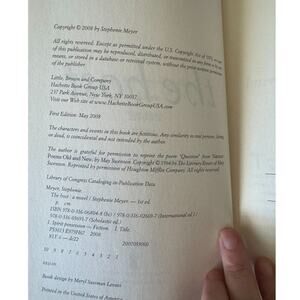 Copyright © 2008 by Stephenie Meyer
All rights reserved. Except as permitted under the U.S. Copyright Act of 1976, no part
of this publication may be reproduced, distributed, or transmitted in any form or by any
means, or stored in a database or retrieval system, without the prior written permission
of the publisher.
Little, Brown and Company
Hachette Book Group USA
237 Park Avenue, New York, NY 10017
Visit our Web site at www.HachetteBookGroupUSA.com
First Edition: May 2008
The characters and events in this book are fictitious. Any similarity to real persons, living
or dead, is coincidental and not intended by the author.
The author is grateful for permission to reprint the poem "Question" from Nature:
Poems Old and New, by May Swenson. Copyright © 1994 by The Literary Estate of May
Swenson. Reprinted by permission of Houghton Mifflin Company. All rights reserved.
Library of Congress Cataloging-in-Publication Data
Meyer, Stephenie.
The host : a novel / Stephenie Meyer. — 1st ed.
p. cm.
ISBN 978-0-316-06804-8 (hc) / 978-0-316-02869-7 (International ed.) /
(Scholastic ed.)
1. Spirit possession — Fiction. I. Title.
PS3613.E979H67 2008
813'.6 — dc22
2007093060
10 9 8 7 6 5 4 3 2 1
RRD-IN
Book design by Meryl Sussman Levavi
Printed in the United States of America